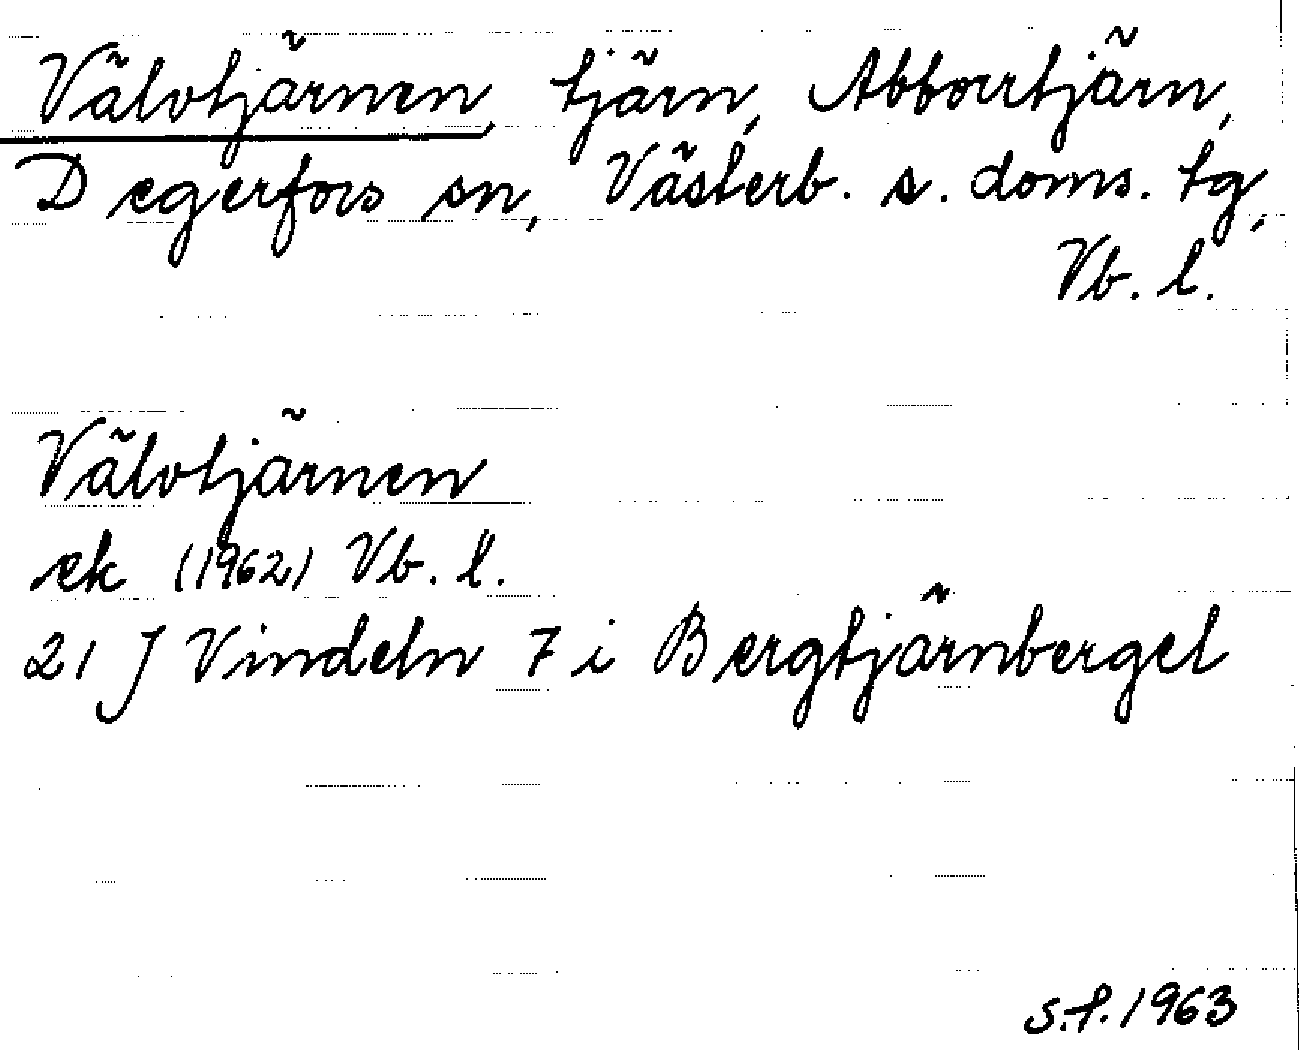 Välvtjärnen, tjärn, Abborrtjärn,
Degerfors sn, Västerb. s. doms. tg,
Vb. l.
Välvtjärnen
ek (1962) Vb. l.
21 J Vindeln 7 i Bergtjärnberget
s.f. 1963